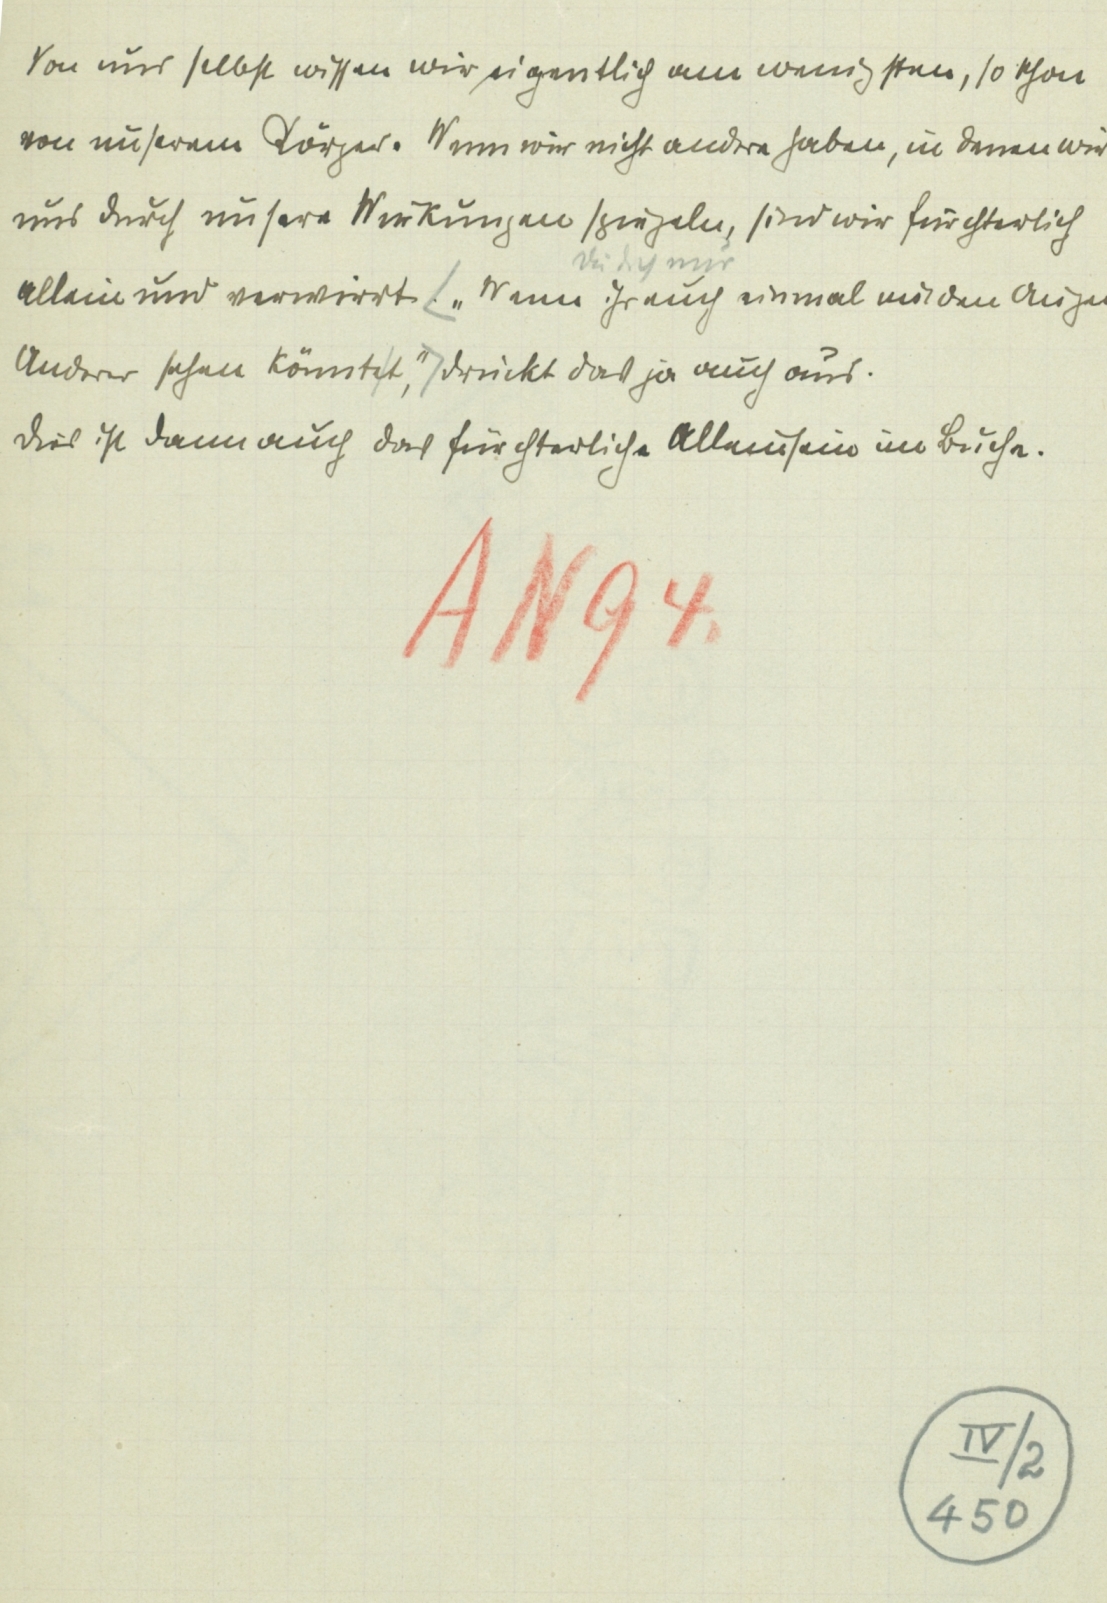 Von uns selbst wissen wir eigentlich am wenigsten, so schon
von unserem Körper. Wenn wir nicht andere haben, in denen wir
uns durch unsere Wirkungen spiegeln, sind wir fürchterlich
Du dich nur
allein und verwirrt. („Wenn ihr euch einmal mit den Augen
Anderer sehen könntet,") drückt das ja auch aus.
Dies ist dann auch das fürchterliche Alleinsein im Buche.
AN 94.
IV/2
450